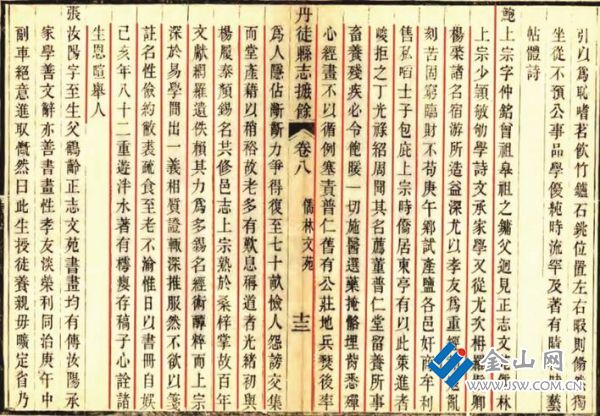 引以為恥嗜茗飲竹爐石銚位置左右暇則翛然獨
坐從不預公事品學優純時流罕及著有時藝
帖體詩
鮑上宗字仲銘曾祖皋祖之鏞父迥見正志文苑儒林
上宗少穎敏劬學詩文承家學又從尤次枏羅卿
楊棨諸名宿游所造益深尤以孝友為重經亂
刻苦固窮臨財不苟庚午鄉試產鹽各邑奸商牟利
售私啗士子包庇上宗時僑居東亭有以此策進者
峻拒之丁光祿紹周聞其名薦董普仁堂留養所事
畜養殘疾必令飽暖一切施醫選藥掩骼埋胔悉殫
心經畫不以循例塞責普仁舊有公莊地兵燹後率
丹徒縣志摭餘 卷八 儒林文苑 十三
為人隱佔斷斷力爭得復至七十畝儉人怨謗交集
而堂產藉以稍裕故老多有歎息稱道者光緒初與
楊履泰顏錫名共修邑志上宗熟於桑梓掌故百年
文獻網羅遺佚賴其力為多錫名經術醇粹而上宗
深於易學間出一義相質證輒深推服然不欲以箋
註名性儉約敝衣疏食至老不渝惟日以書冊自娛
己亥年八十二重遊泮水著有樗瘦存稿子心詮諸
生恩暄舉人
張汝陽字至生父鶴齡正志文苑書畫均有傳汝陽承
家學善文辭亦善書畫性孝友淡榮利同治庚午中
副車絕意進取慨然曰此生授徒養親毋曠定省乃
金山网
WWW.JSW.COM.CN